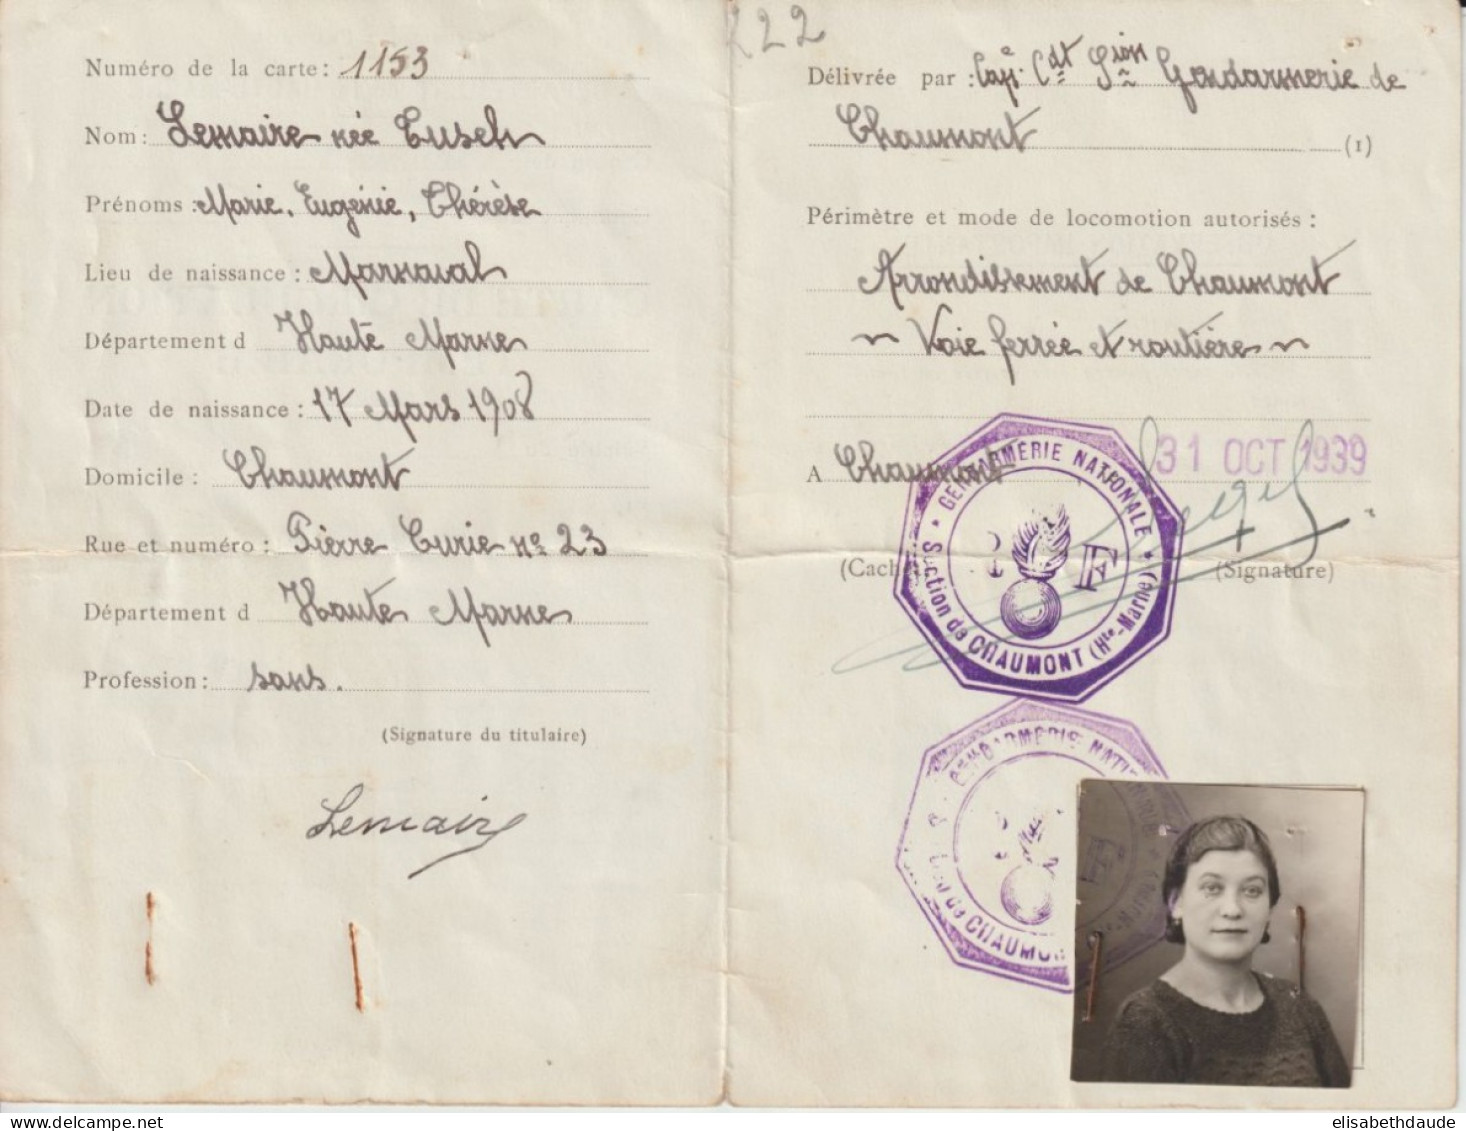 Numéro de la carte : 1153
Nom : Lemaire née Tusch
Prénoms : Marie, Eugénie, Thérèse
Lieu de naissance : Marnaval
Département d Haute Marne
Date de naissance : 17 Mars 1908
Domicile : Chaumont
Rue et numéro : Pierre Curie nº 23
Département d Haute Marne
Profession : sans.
(Signature du titulaire)
Lemaire
222
Délivrée par : Cape Cdt Sion Gendarmerie de
Chaumont (1)
Périmètre et mode de locomotion autorisés :
Arrondissement de Chaumont
~ Voie ferrée et routière ~
A Chaumont 31 OCT 1939
(Cachet (Signature)
* GENDARMERIE NATIONALE *
RF
Section de CHAUMONT (Hte-Marne)
GENDARMERIE NATI
de CHAUMON
elisabethdaude